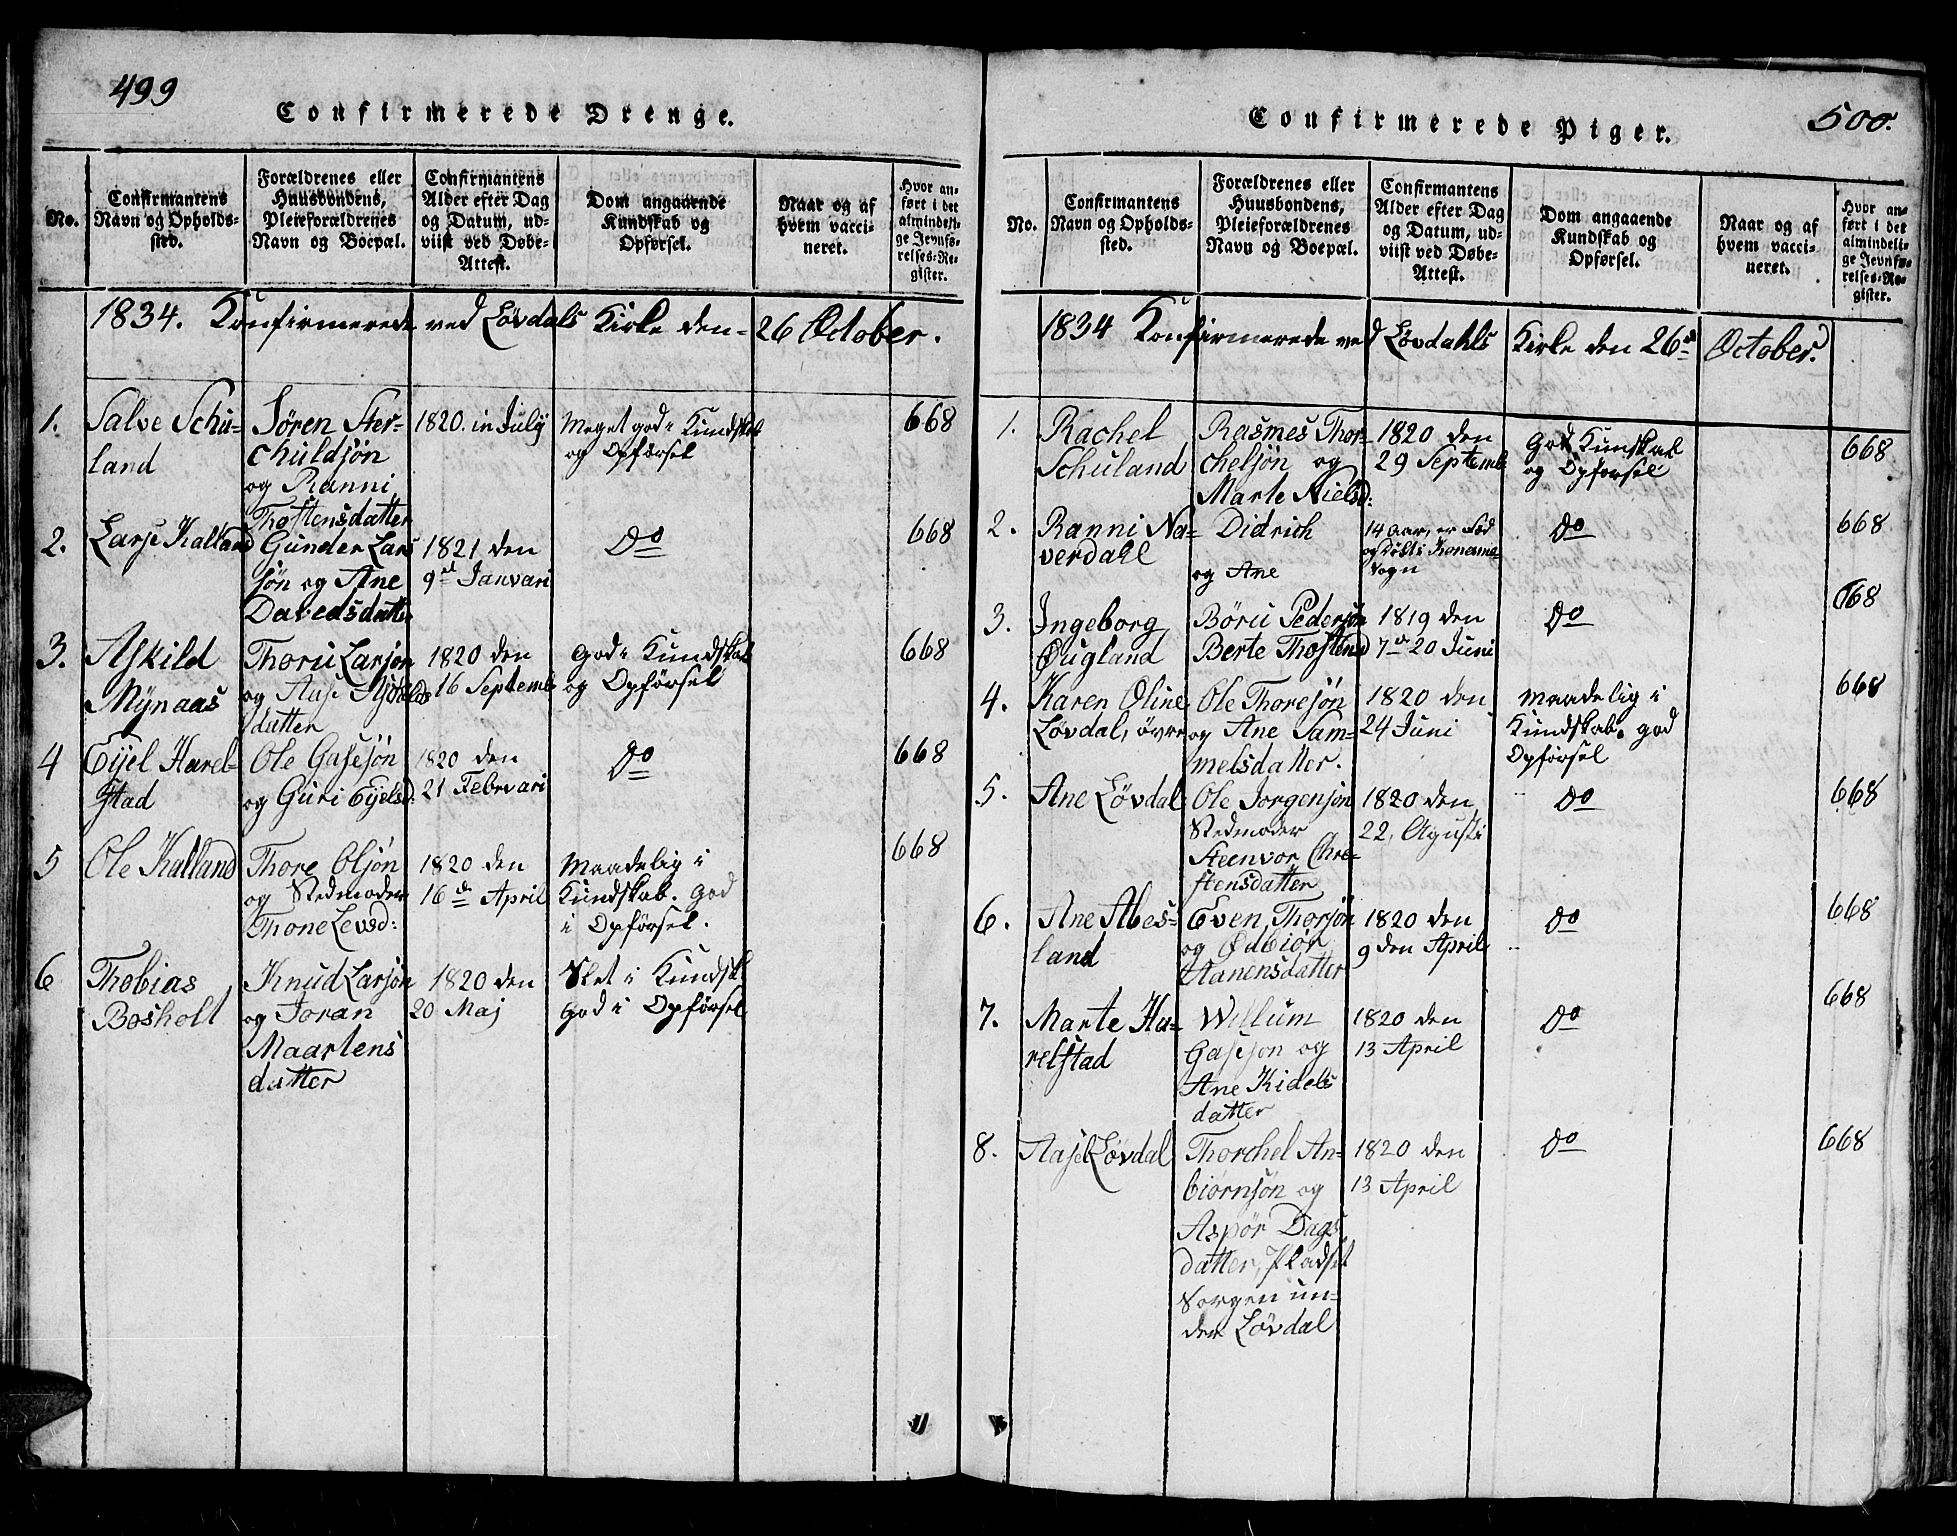 499
Confirmerede Drenge.
No.
Confirmantens
Navn og Opholds-
sted.
Forældrenes eller
Huusbondens,
Pleieforældrenes
Navn og Boepæl.
Confirmantens
Alder efter Dag
og Datum, ud-
viist ved Døbe-
Attest.
Dom angaaende
Kundskab og
Opførsel.
Naar og af
hvem vacci-
neret.
Hvor an-
ført i det
almindeli-
ge Jevnfø-
relses-Re-
gister.
1834. Konfirmerede ved Løvdals Kirke den 26 October.
1.
Salve Schu-
land
Sören Ster-
chuldsön
og Ranni
Thostensdatter
1820. in July
Meget god i Kundskab
og Opførsel
668
2.
Larse Kalland
Gunder Lars
søn og Ane
Davedsdatter
1821 den
9de Janvari
Do
668
3.
Askild
Mÿnaas
Thoru Larsøn
og Aase
datter
1820 den
16 Septemb
God i Kundskab
og Opförsel
668
4
Eijel Harel-
stad
Ole Gasesøn
og Guri Eijelsd:
1820 den
21 Februari
Do
668
5
Ole Kalland
Thore Olsön
og Stedmoder
Thone Levsd:
1820 den
16de April
Maadelig i
Kundskab. God
i Opförsel.
668
6
Thobias
Bosholt
Knud Larsön
og Joran
Maartens
datter
1820 den
20 Maj
Slet i Kundsk
God i Opförsel
500.
Confirmerede Piger.
No.
Confirmantens
Navn og Opholds-
sted.
Forældrenes eller
Huusbondens,
Pleieforældrenes
Navn og Boepæl.
Confirmantens
Alder efter Dag
og Datum, ud-
viist ved Døbe-
Attest.
Dom angaaende
Kundskab og
Opførsel.
Naar og af
hvem vacci-
neret.
Hvor an-
ført i det
almindeli-
ge Jevnfø-
relses-Re-
gister.
1834 Konfirmerede ved Løvdahls Kirke den 26de October.
1.
Rachel
Schuland
Rasmes Thor-
chelsön og
Marte Nielsd:
1820 den
29 Septemb
God Kundskab
og Opförsel
668
2.
Ranni Na-
verdahl
Didrich
og Ane
14 Aar, er Föd
og Döbt i
Sogn
Do
668
3.
Ingeborg
Øugland
Böru Pedersön
Berte Thostensd
1819 den
7de 20 Juni
Do
668
4.
Karen Oline
Løvdal, övre
Ole Thoresön
og Ane Sam-
melsdatter.
1820 den
24 Juni
Maadelig i
Kundskab. god
Opförsel
668
5.
Ane Løvdal
Ole Jorgensön
Stedmoder
Steenvor Chre-
stensdatter
1820 den
22, Agusti
Do
668
6.
Ane Abes-
land
Even Thorsön
og Ødbiør
Aanensdatter
1820 den
9 den April
Do
668
7.
Marte Ha-
relstad
Willum
Gasesön og
Ane Kidels
datter
1820 den
13 April
Do
668
8.
Aase Løvdal
Thorchel An-
biörnsön og
Aspör Dags
datter, Pladset
Sorgen un-
der Løvdal
1820 den
13 April
Do
668